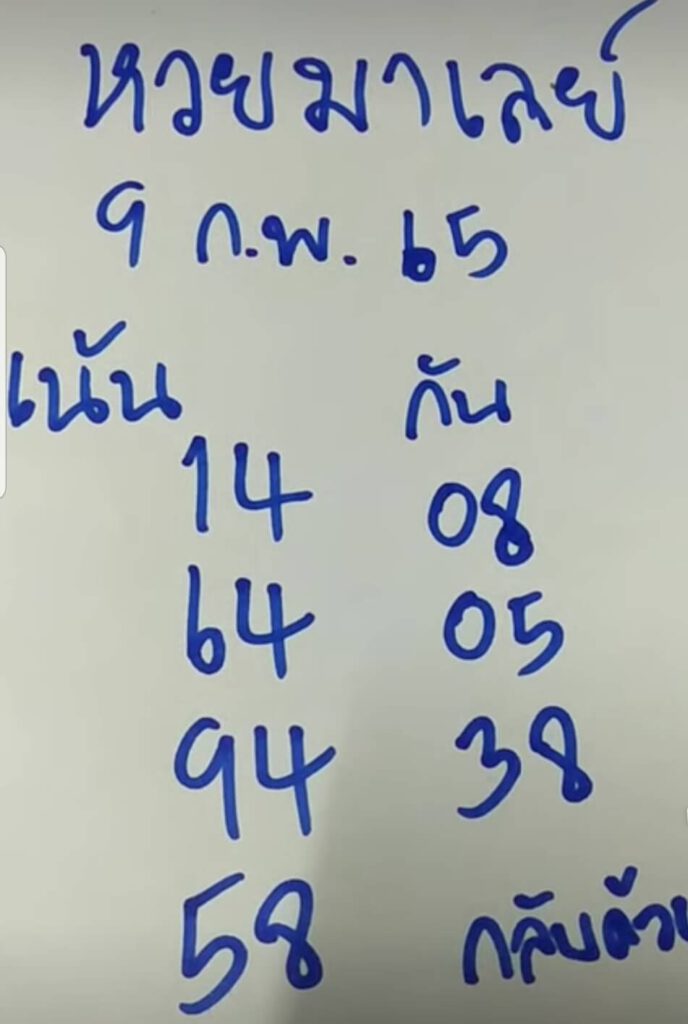 หวยมาเลย์
9 ก.พ. 65
เน้น กัน
14 08
64 05
94 38
58 กลับด้วย